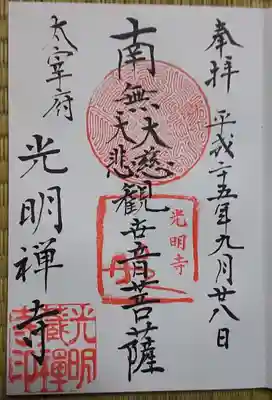 奉拝
平成二十五年九月廿八日
南無大慈大悲観世音菩薩
光明寺
太宰府
光明禅寺
光明
蔵禅
寺印